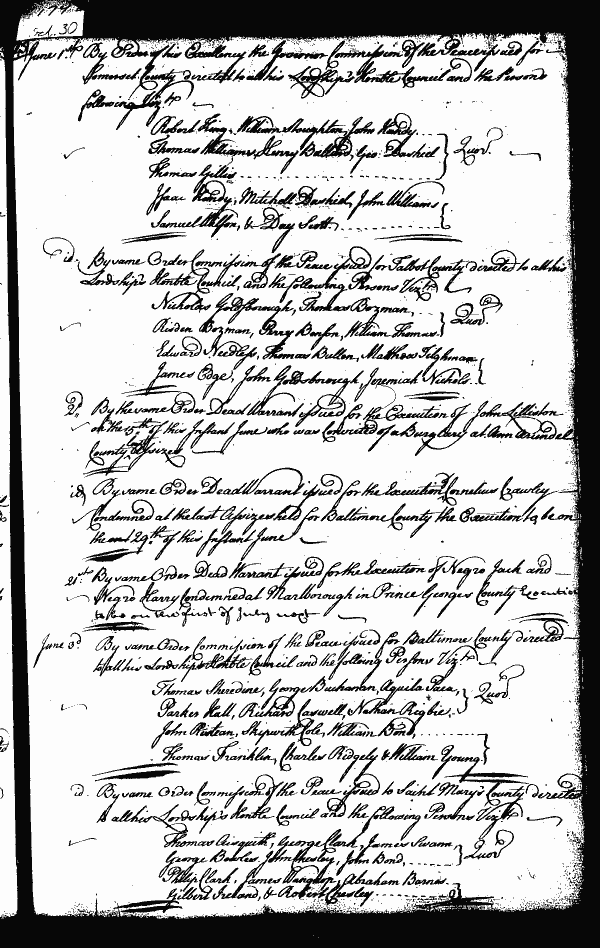 June 1st By Order of his Excellency the Governor Commission of the Peace issued for
Somerset County directed to all his Lordship's Honble Council and the Persons
following Vizt
Robert King, William Stoughton, John Handy
Thomas Williams, Henry Ballard, Geo: Dashiel } Quor.
Thomas Gillis
Isaac Handy, Mitchell Dashiel, John Williams
Samuel Wilson, & Day Scott.
id. By same Order Commission of the Peace issued for Talbot County directed to all his
Lordship's Honble Council, and the following Persons Vizt
Nicholas Goldsborough, Thomas Bozman,
Risden Bozman, Perry Benson, William Thomas } Quor.
Edward Needless, Thomas Bullen, Matthew Tilghman
James Edge, John Goldsborough, Jeremiah Nichols.
2. By the same Order Dead Warrant issued for the Execution of John Lilliston
on the 5th of this Instant June who was Convicted of a Burglary at Ann Arundel
County Assizes
id By same Order Dead Warrant issued for the Execution of Cornelius Crawley
Condemned at the last Assizes held for Baltimore County the Execution to be on
the 29th of this Instant June
By same Order Dead Warrant issued for the Execution of Negro Jack and
Negro Harry Condemned at Marlborough in Prince Georges County Execution
to be on the first of July next
June 3d. By same Order Commission of the Peace issued for Baltimore County directed
to all his Lordship's Honble Council and the following Persons Vizt
Thomas Sheredine, George Buchanan, Aquila Paca,
Parker Hall, Richard Caswell, Nathan Rigbie, } Quor
John Risteau, Skipwith Cole, William Bond,
Thomas Franklin, Charles Ridgely & William Young
id. By same Order Commission of the Peace issued to Saint Mary's County directed
to all his Lordship's Honble Council and the following Persons Vizt
Thomas Aisquith, George Clark, James Swann
George Bowles, John Chesley, John Bond, } Quor
Philip Clark, James Abraham Barnes.
Gilbert Ireland, & Robert Chesley